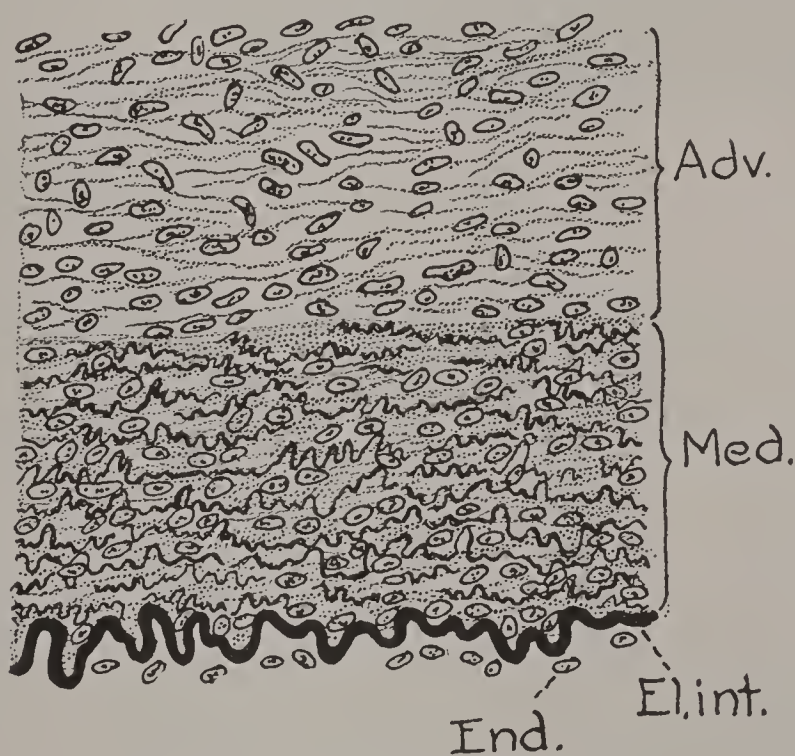 Adv.
Med.
El.int.
End.